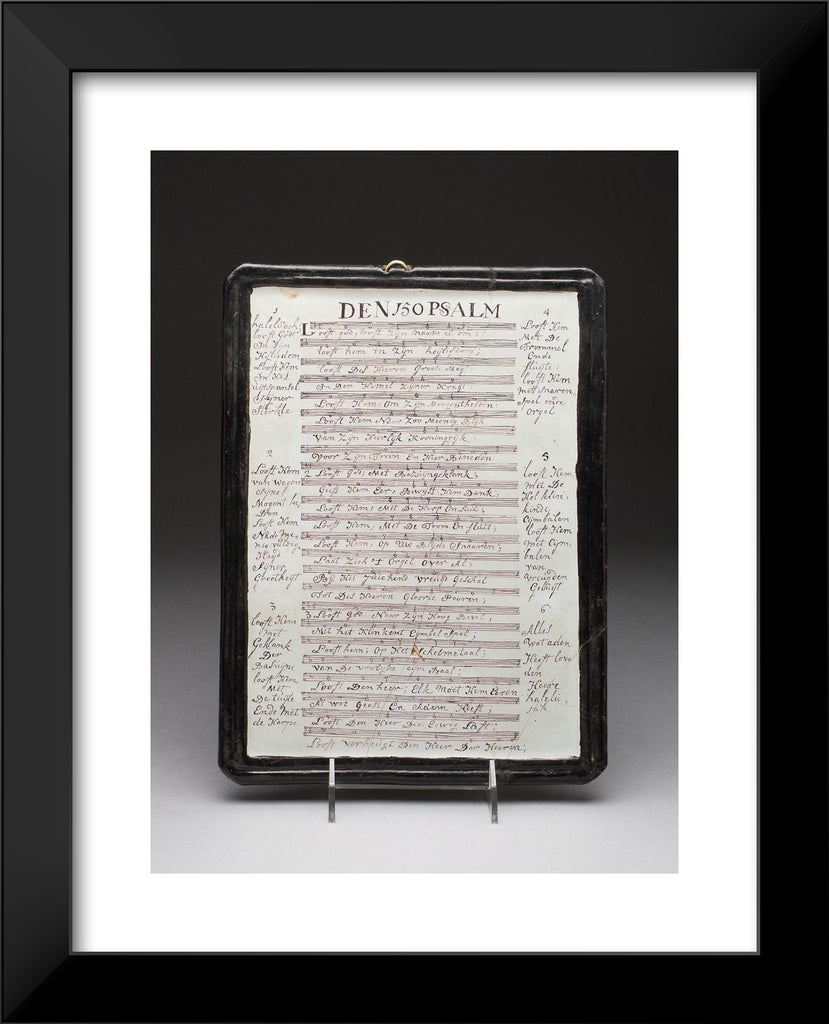 DEN 150 PSALM
1
halelujach
looft Godt
In Zijn
Hijledom
Looft Hem
In Het
uijtspansel
sijner
Sterkte
2
Looft Hem
van wegen
sijnes
Mogent he
Den
Looft Hem
Na de me
nig vuldig
Heijt
sijner
Grootheijt
3
looft Hem
met
Geklank
Der
Basuijne
looft Hem
Met
De Luijte
Ende Met
de Harpe
Looft god, looft zijn naam al om;
looft hem in Zijn heijligdom;
looft Des Heeren Groode Mag!
In Den Hemel Zijner Kragt
Looft Hem Om Zijn Moogentheeden
Looft Hem Naar Zoo Meenig Blijk
van Zijn Heerlijk Kooningrijk
voor Zijn Troon En Hier Beneden
2 Looft god, Met Bazuijngeklank;
Geeft Hem Eer, Bewijst Hem Dank;
Looft Hem, Met De Harp En Luit;
Looft Hem, Met De Trom En fluit;
Looft Hem, Op Uw Blijde Snaaren;
Laat Zich 't Orgel Over Al;
Bij Het Juichend vreugd Geschal
Tot Des Heeren Gloorie Paaren;
3 Looft god Naar Zijn Hoog Bevel,
Met het Klinkent Cymbel Spel;
Looft hem, Op Het Schelmetaal;
van De vrolijke cijmbaal;
Looft Den heer; Elk Moet Hem Eeren
Al wat Geest En Adem Heeft;
Looft Den Heer Die Eewig Leeft;
Looft verheugt Den Heer Der Heeren;
4
Looft Hem
Met De
Trommel
Ende
fluijte:
looft Hem
met snaren
spel ende
Orgel
5
looft Hem
met De
Hel klin,
kinde
Cymbalen
looft Hem
met Cijm,
balen
van
vreugden
Geluijt
6
Alles
Wat aden
Heeft love
den
Heere
halelu-
jah